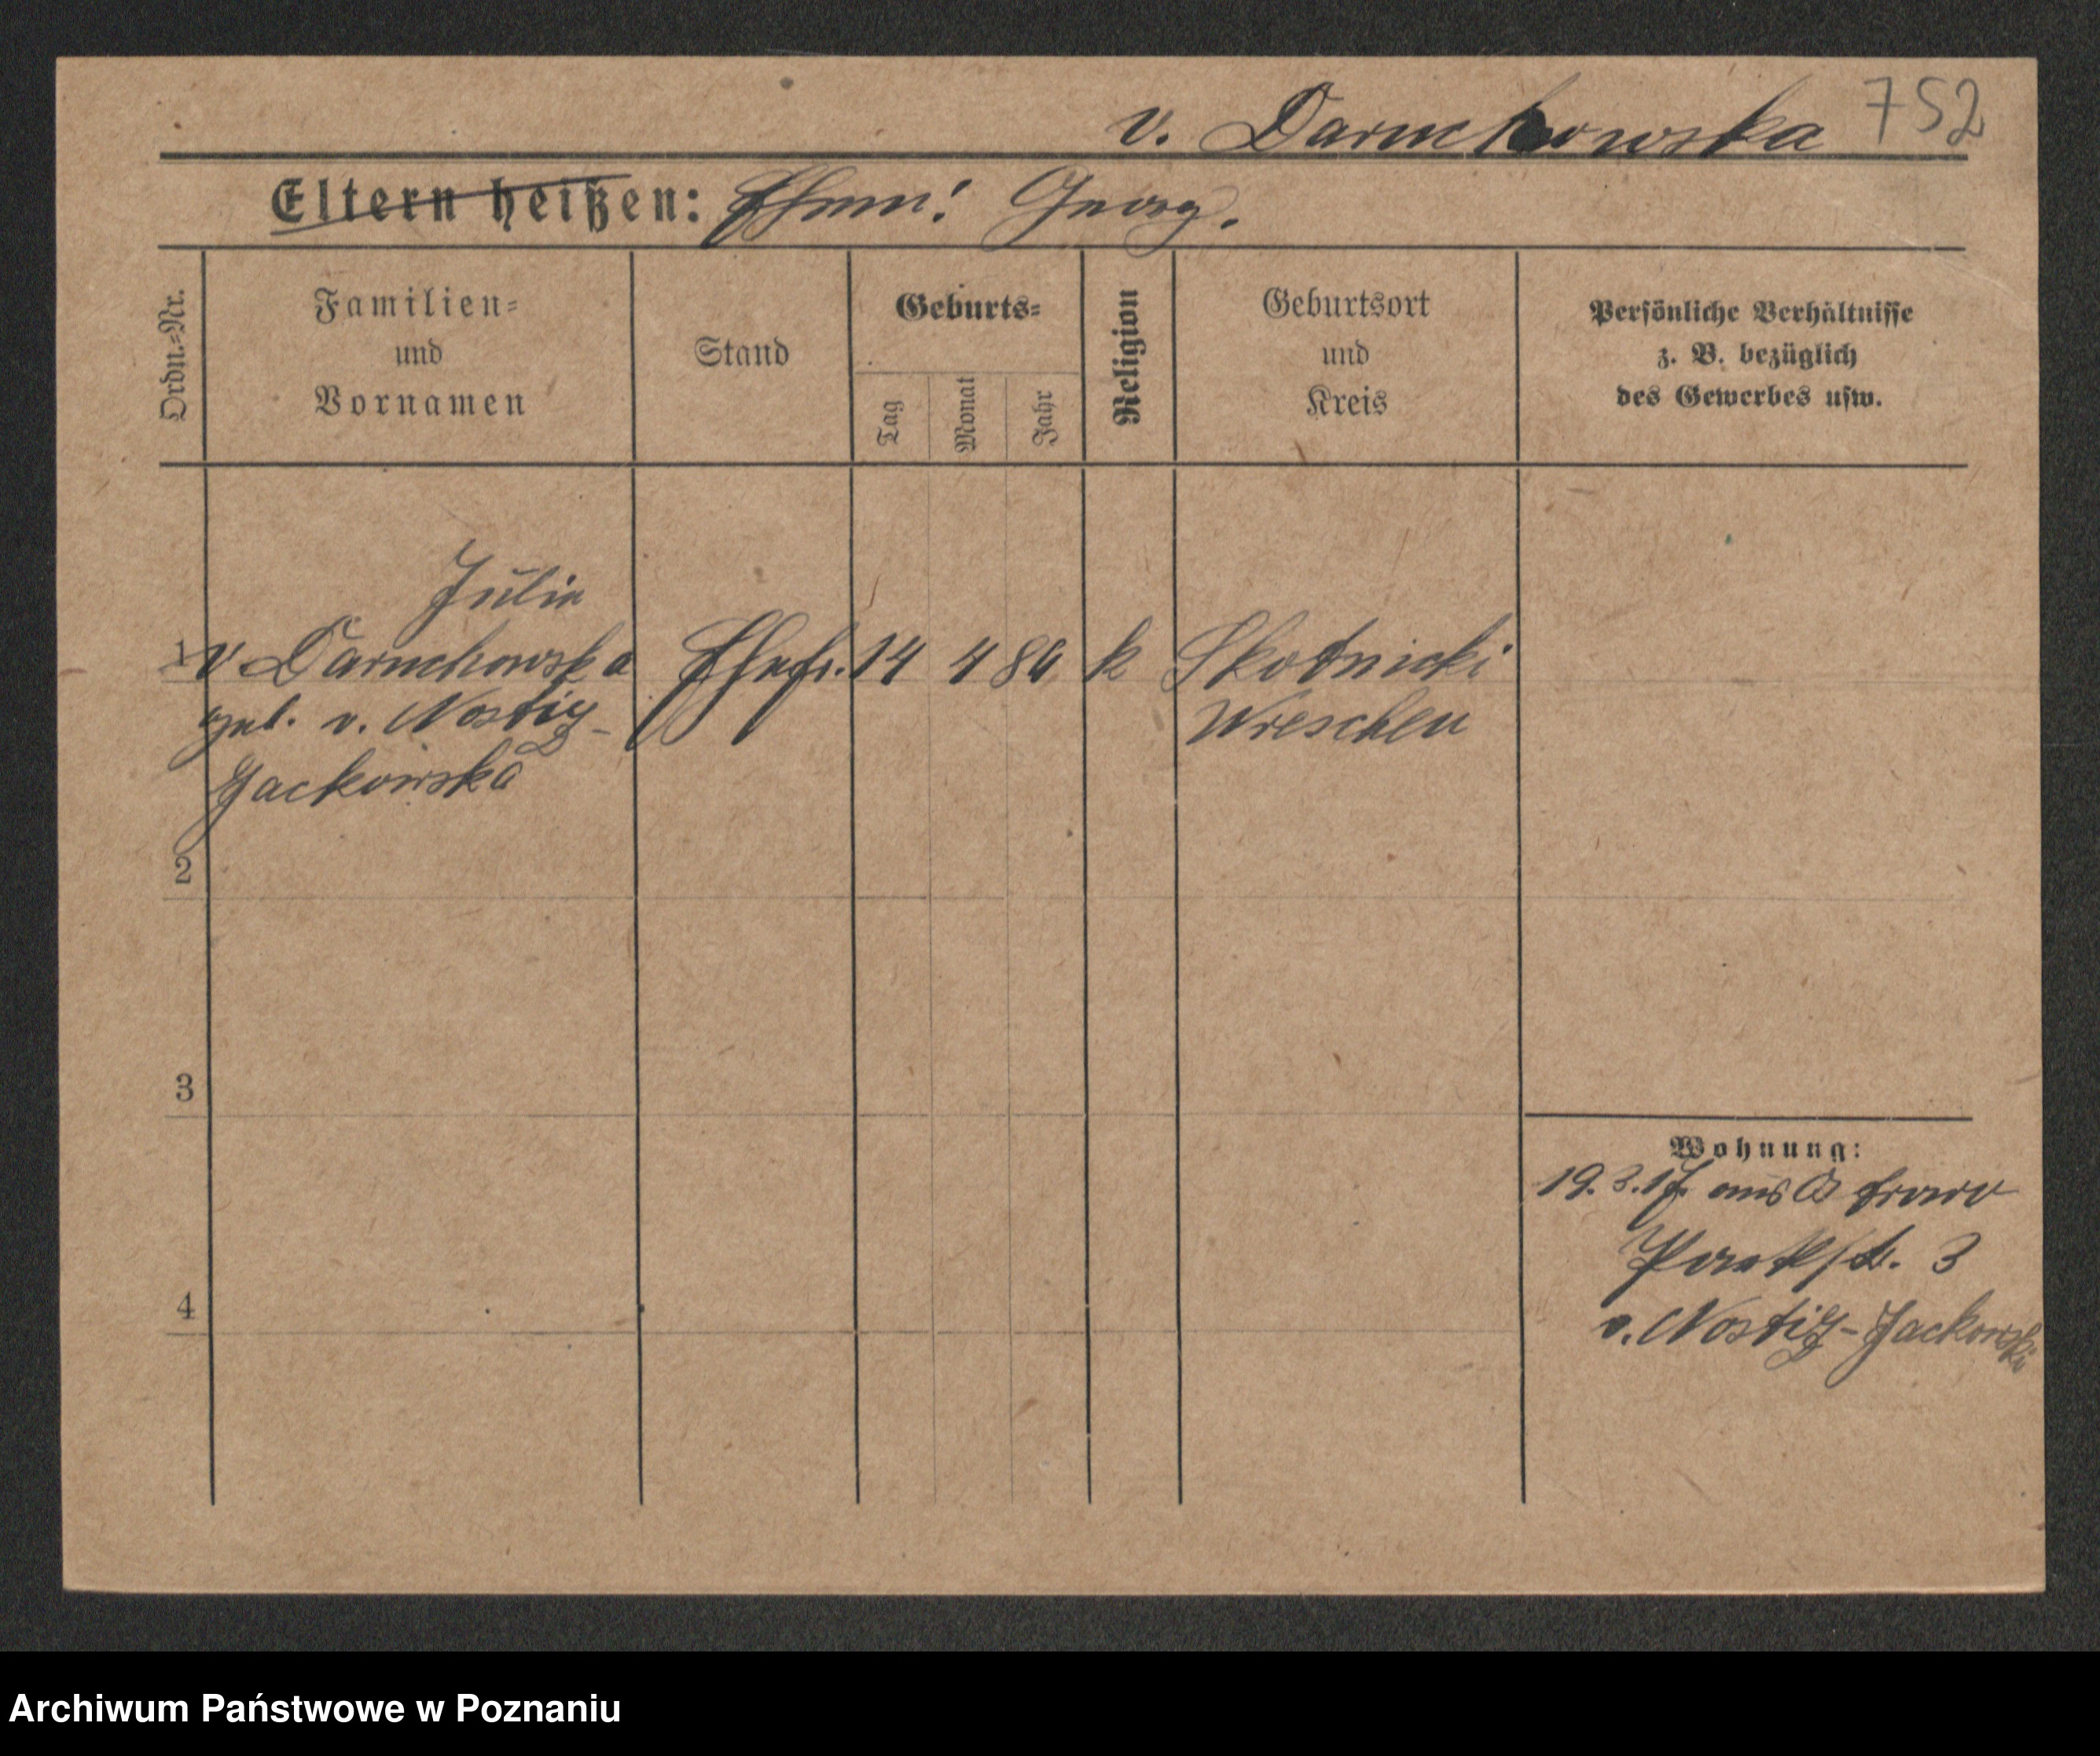 v. Daruchowska 752
Eltern heißen: Ehem: Georg.
Ordn.=Nr.
Familien=
und
Vornamen
Stand
Geburts=
Tag
Monat
Jahr
Religion
Geburtsort
und
Kreis
Persönliche Verhältnisse
z. B. bezüglich
des Gewerbes usw.
Julia
1 v Daruchowska Ehefr. 14 4 84 k Skotnicki
geb. v. Nostiz- Wreschen
Jackowska
2
3
4
Wohnung:
19.3.17. aus Ostrowo
Parkstr. 3
v. Nostiz-Jackowski
Archiwum Państwowe w Poznaniu